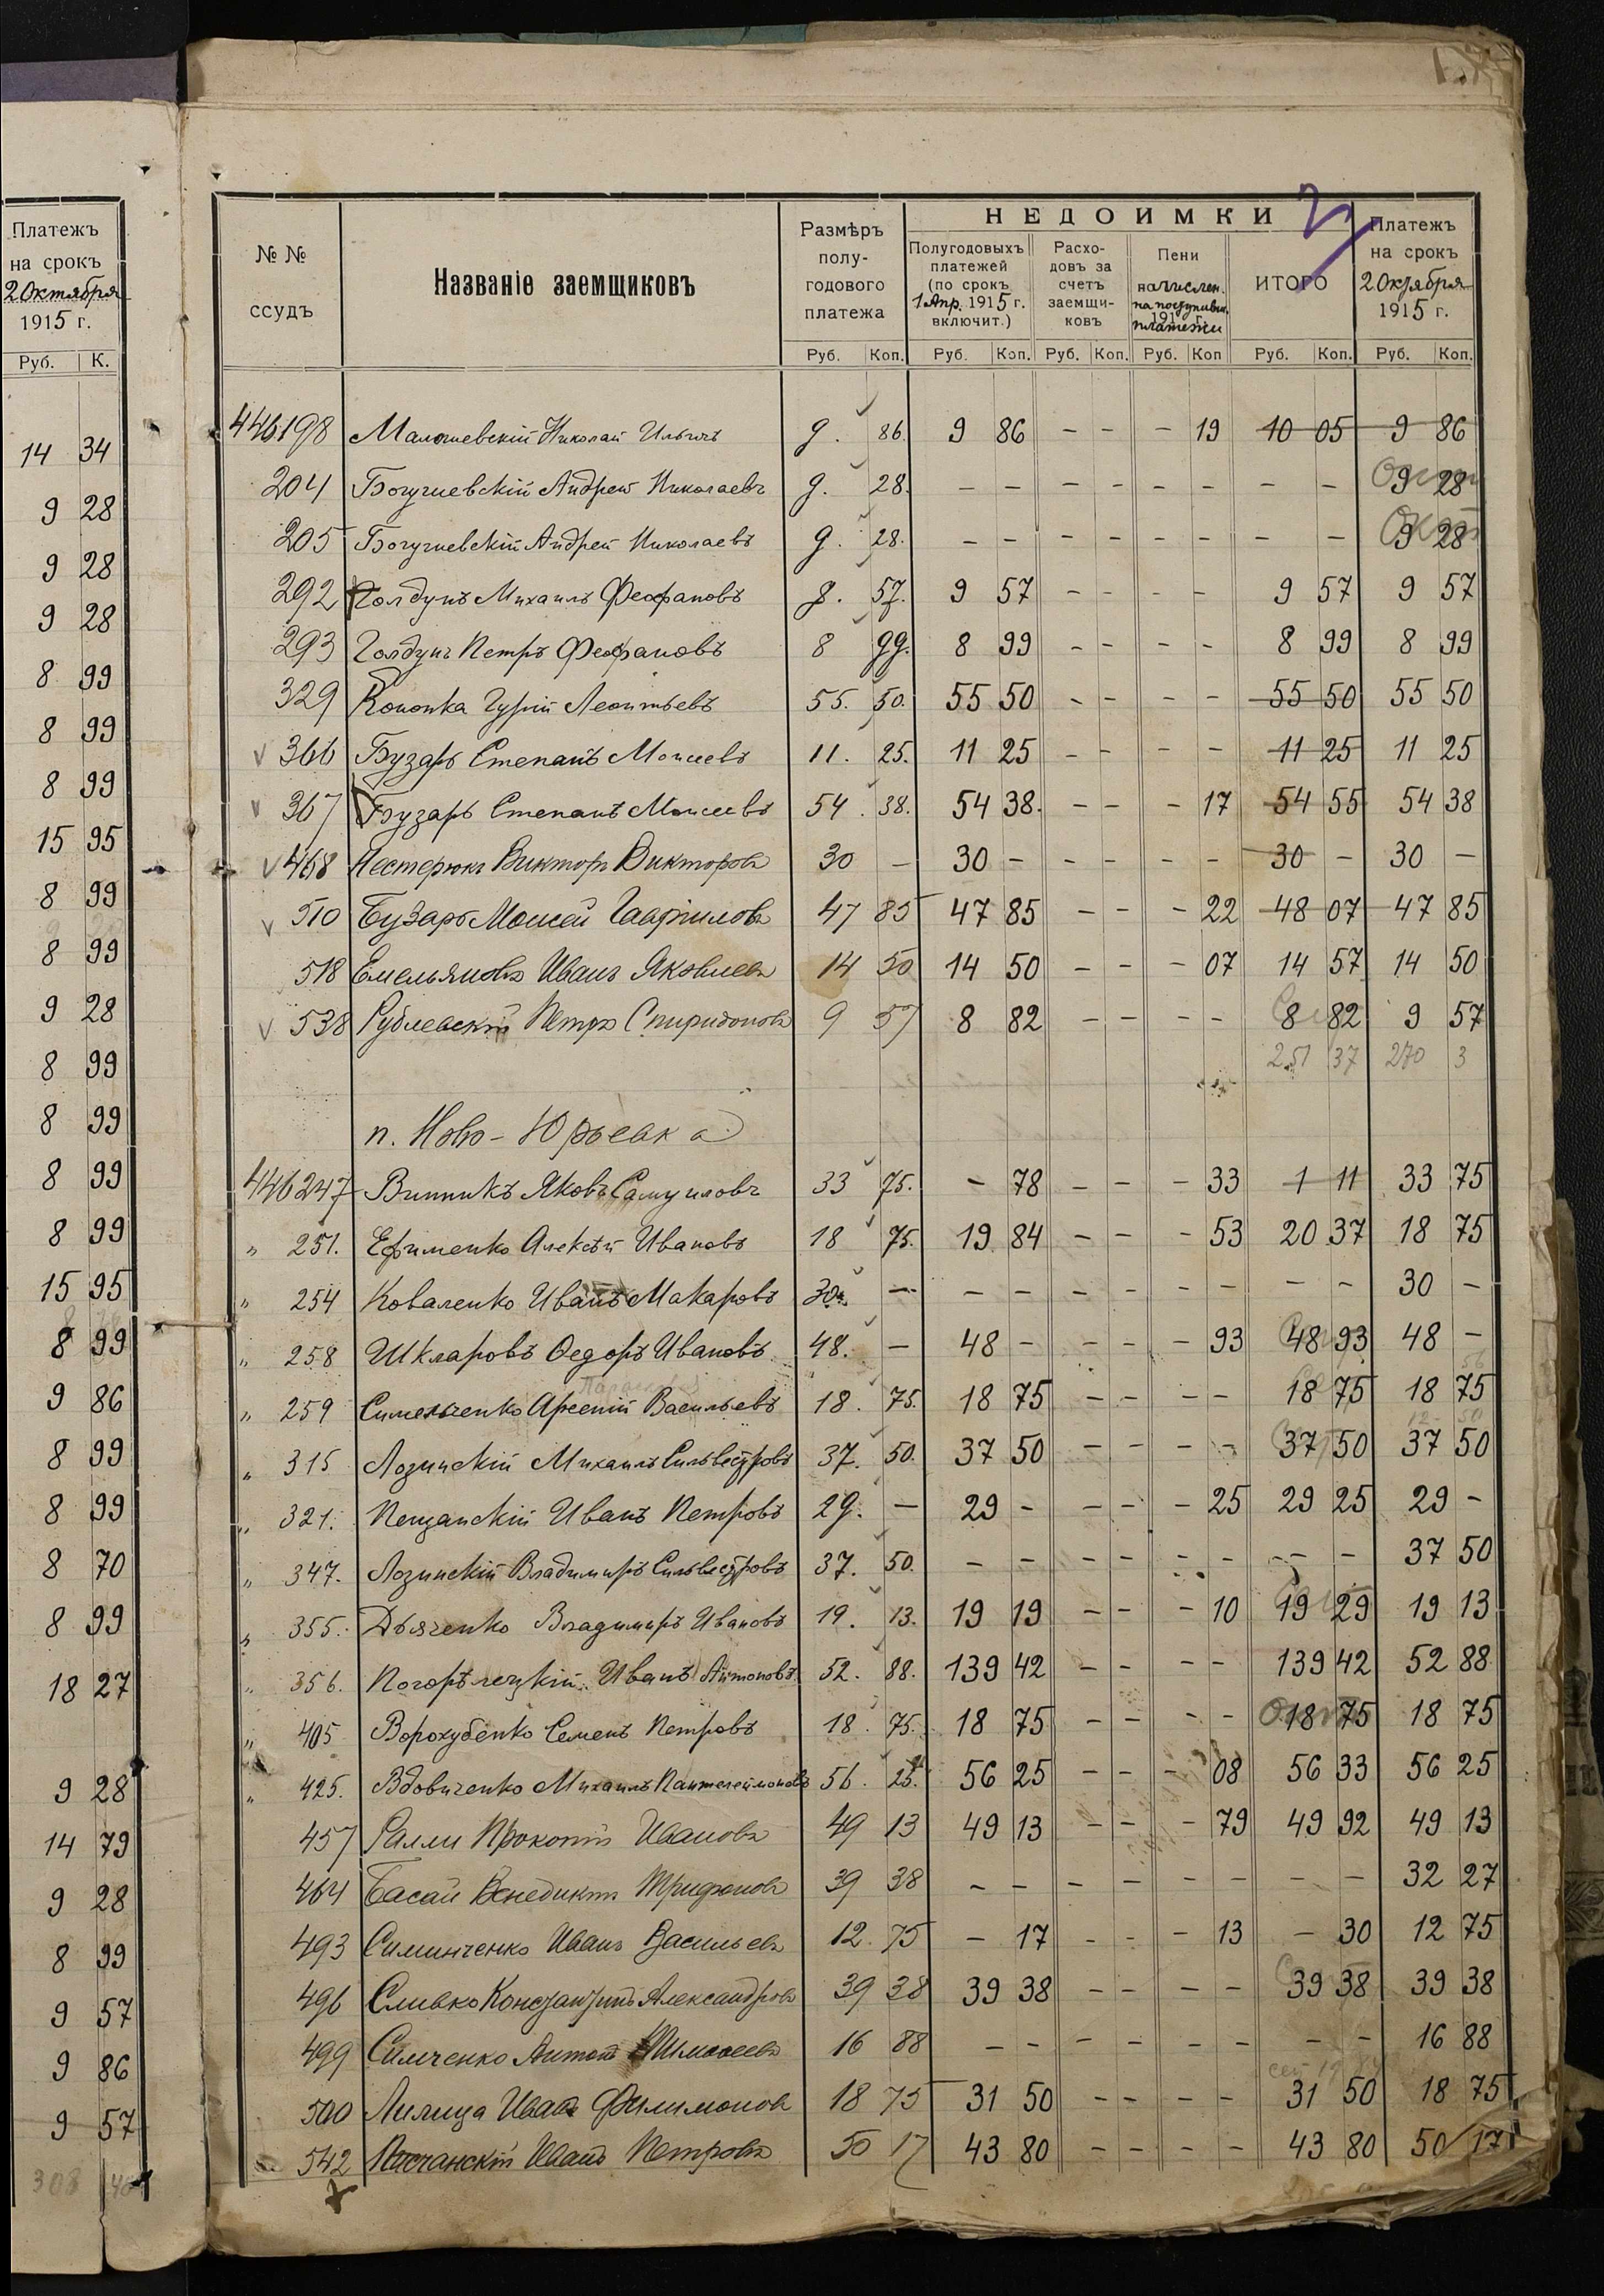 Платежъ
на срокъ
2 Октября
1915 г.
Руб. К.
14 34
9 28
9 28
9 28
8 99
8 99
8 99
15 95
8 99
8 99
9 28
8 99
8 99
8 99
8 99
15 95
8 99
9 86
8 99
8 99
8 70
8 99
18 27
9 28
14 79
9 28
8 99
9 57
9 86
9 57
308
№ № ссудъ
Названіе заемщиковъ
Размѣръ полу-годового платежа
НЕДОИМКИ
Полугодовыхъ платежей (по срокъ 1 Апр. 1915 г. включит.)
Расхо-довъ за счетъ заемщи-ковъ
Пени начислен. на поступивш. 191 г. платежи
ИТОГО
Платежъ на срокъ 2 Октября 1915 г.
Руб. Коп. Руб. Коп. Руб. Коп. Руб. Коп Руб. Коп. Руб. Коп.
446198 Николай Ильичъ 9. 86. 9 86 - - - 19 10 05 9 86
204 Андрей Николаевъ 9. 28. - - - - - - - - 9 28
205 Андрей Николаевъ 9. 28. - - - - - - - - 9 28
292 Голдунъ Михаилъ Феофановъ 9. 57. 9 57 - - - - 9 57 9 57
293 Голдунъ Петръ Феофановъ 8 99. 8 99 - - - - 8 99 8 99
329 Кононка Гурій Леонтьевъ 55. 50. 55 50 - - - - 55 50 55 50
v 366 Бузарь Степанъ Моисеевъ 11. 25. 11 25 - - - - 11 25 11 25
v 367 Бузарь Степанъ Моисеевъ 54. 38. 54 38. - - - 17 54 55 54 38
v 468 Нестерюкъ Викторъ Викторовъ 30 - 30 - - - - - 30 - 30 -
v 510 Бузарь Моисей Гавриловъ 47 85 47 85 - - - 22 48 07 47 85
518 Емельяновъ Иванъ Яковлевъ 14 50 14 50 - - - 07 14 57 14 50
v 538 Рублевскій Петръ Спиридоновъ 9 57 8 82 - - - - 8 82 9 57
251 37 270 3
п. Ново-Юрьевка
446247 Винникъ Яковъ Самуиловъ 33 75. - 78 - - - 33 1 11 33 75
" 251. Ефименко Алексѣй Ивановъ 18 75. 19 84 - - - 53 20 37 18 75
" 254 Коваленко Иванъ Макаровъ 30. - - - - - - - - - 30 -
" 258 Шкларовъ Федоръ Ивановъ 48. - 48 - - - - 93 48 93 48 -
" 259 Арсеній Васильевъ 18. 75. 18 75 - - - - 18 75 18 75
" 315 Лозинскій Михаилъ Сильвестровъ 37. 50. 37 50 - - - - 37 50 37 50
" 321. Пещанскій Иванъ Петровъ 29. - 29 - - - - 25 29 25 29 -
" 347. Лозинскій Владимиръ Сильвестровъ 37. 50. - - - - - - - - 37 50
" 355. Дьяченко Владимиръ Ивановъ 19. 13. 19 19 - - - 10 19 29 19 13
" 356. Погорѣлецкій Иванъ Антоновъ 52. 88. 139 42 - - - - 139 42 52 88
" 405 Ворохубенко Семенъ Петровъ 18. 75. 18 75 - - - - 18 75 18 75
" 425. Вдовиченко Михаилъ Пантелеймоновъ 56. 25. 56 25 - - - 08 56 33 56 25
457 Ралли Прокопій Ивановъ 49 13 49 13 - - - 79 49 92 49 13
464 Басай Венедиктъ Трифоновъ 39 38 - - - - - - - - 32 27
493 Симинченко Иванъ Васильевъ 12. 75 - 17 - - - 13 - 30 12 75
496 Сливко Константинъ Александровъ 39 38 39 38 - - - - 39 38 39 38
499 Симченко Антонъ 16 88 - - - - - - - - 16 88
500 Лилица Иванъ Филимоновъ 18 75 31 50 - - - - 31 50 18 75
542 Песчанскій Иванъ Петровъ 50 17 43 80 - - - - 43 80 50 17